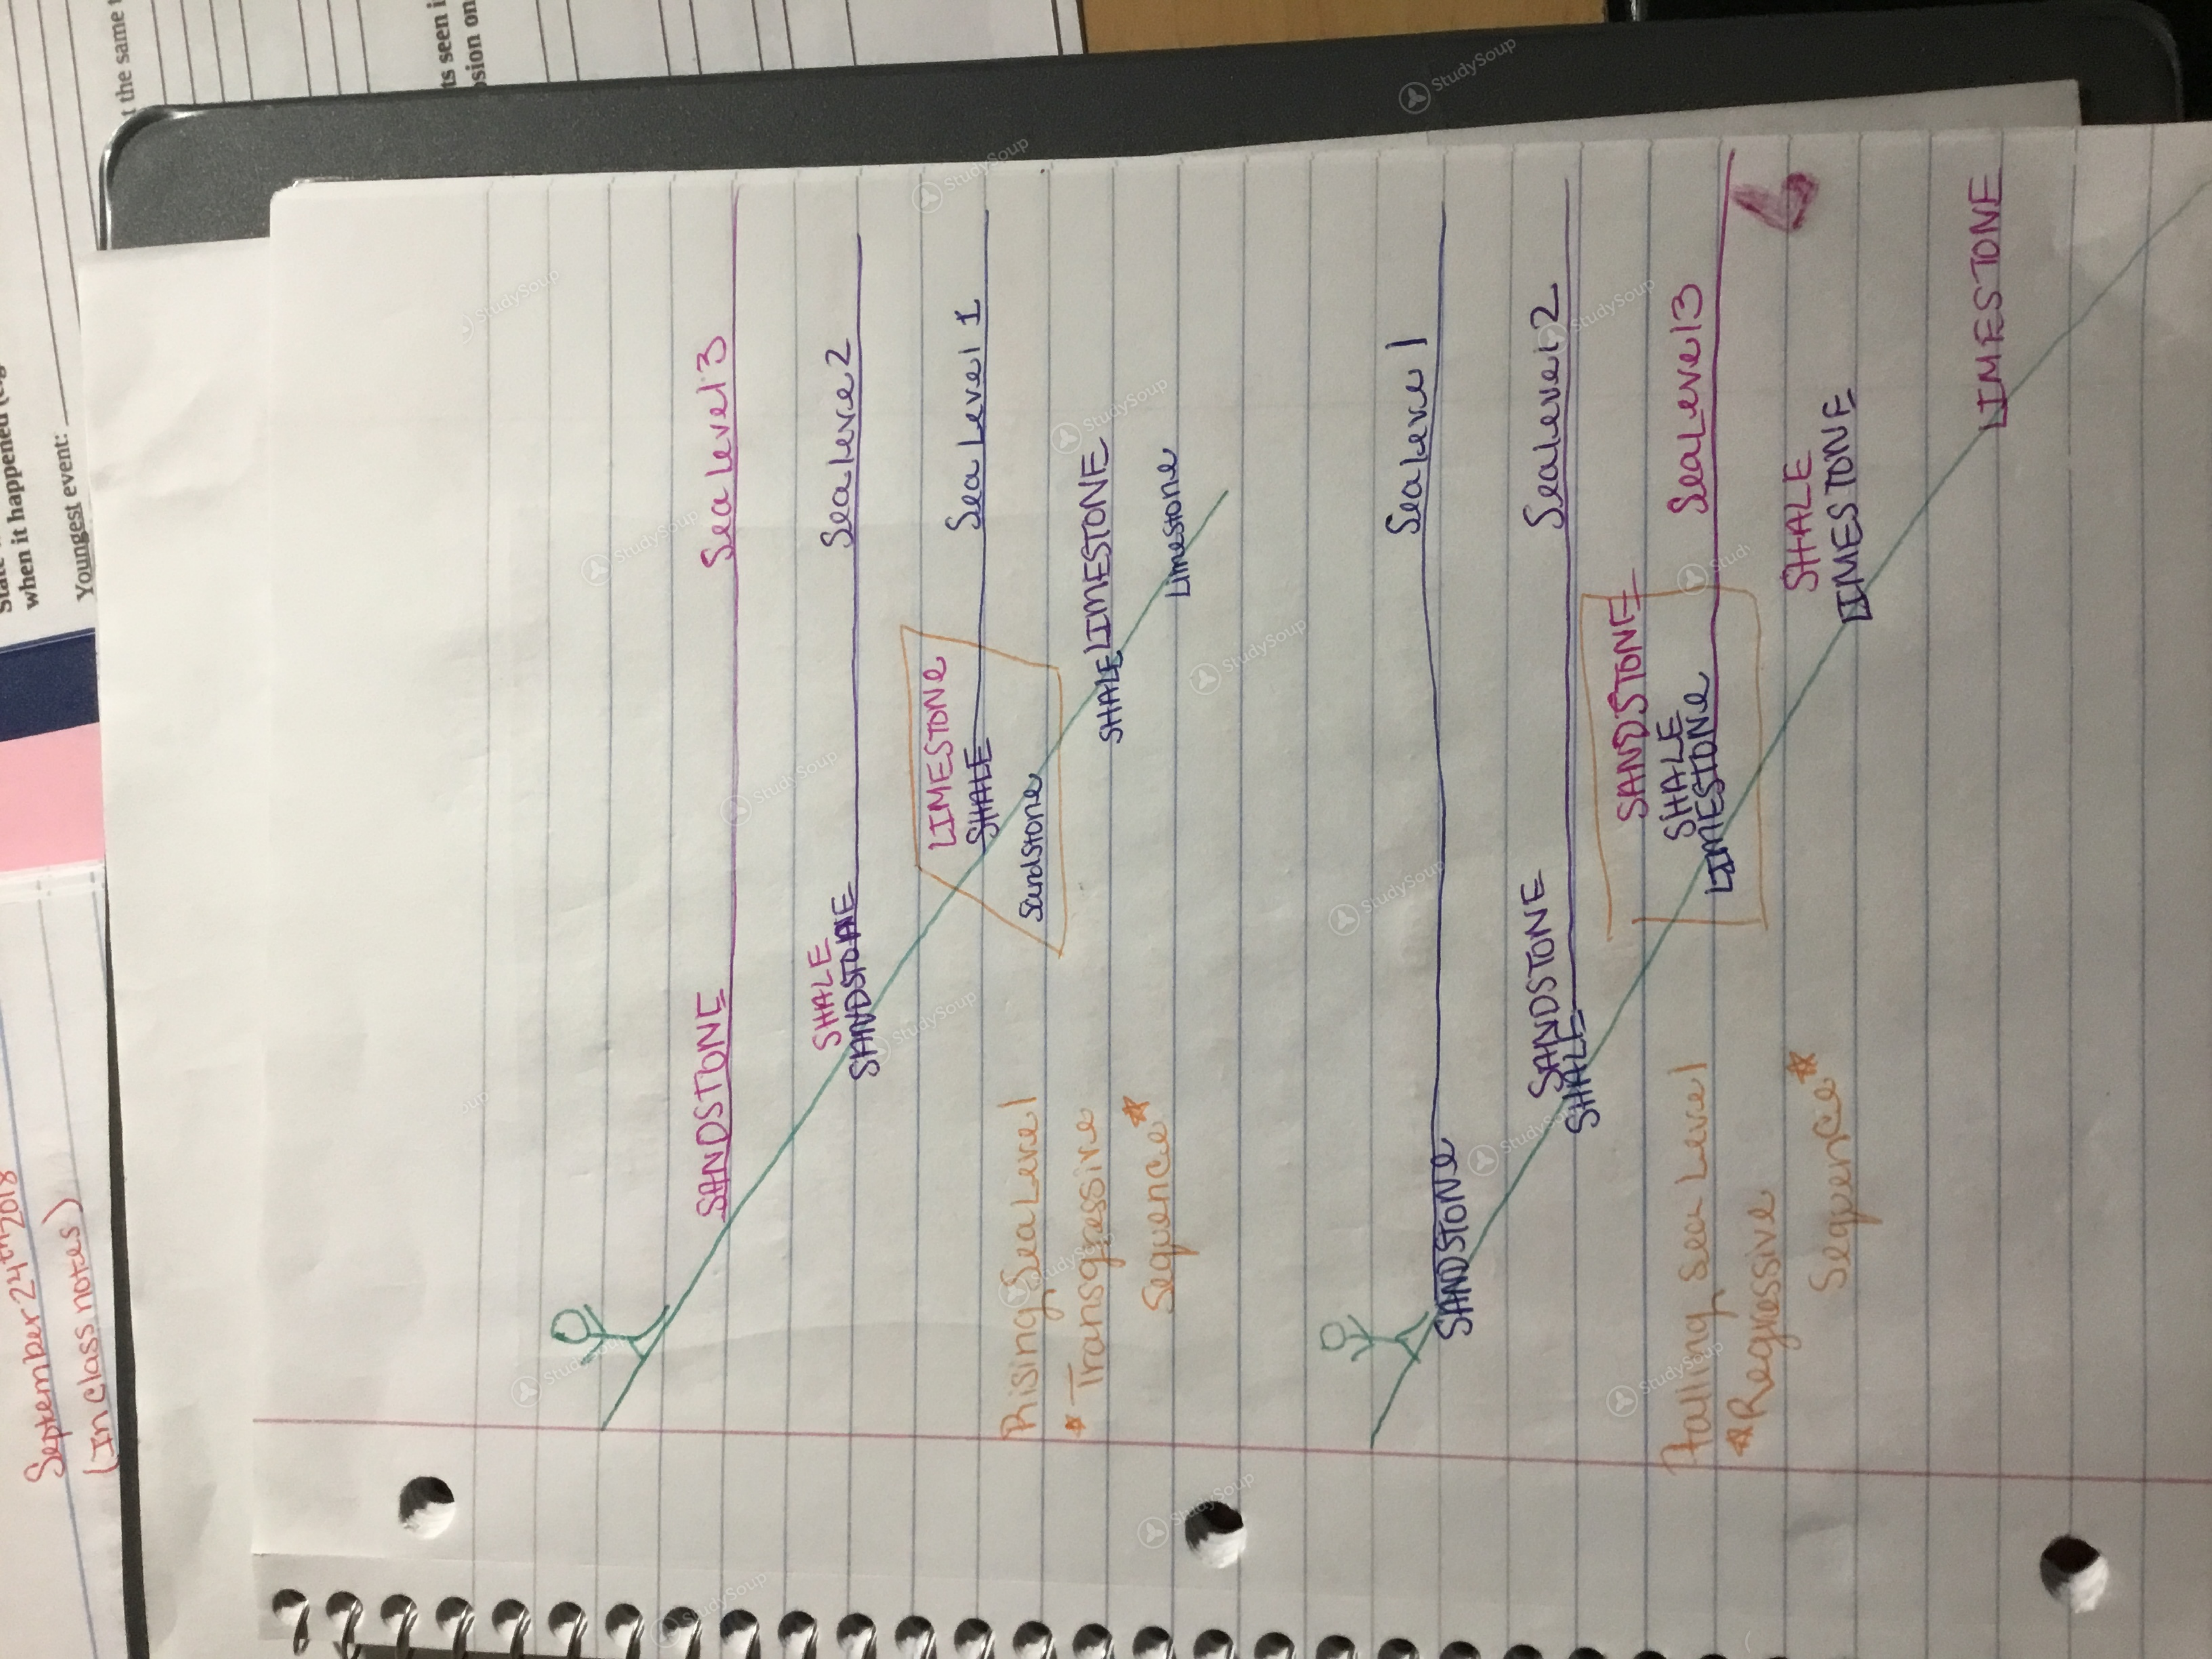 September 24th 2018
(In class notes)
the same
ts seen i
osion on
when it happened (e.g
Youngest event:
Sea Level 3
SANDSTONE
Sea Level 2
SHALE
SANDSTONE
Sea Level 1
LIMESTONE
SHALE
Sandstone
SHALE LIMESTONE
Limestone
Rising Sea Level
*Transgressive
Sequence*
Sea Level 1
SANDSTONE
Sea Level 2
SANDSTONE
SHALE
Sea Level 3
SANDSTONE
SHALE
LIMESTONE
SHALE
LIMESTONE
LIMESTONE
Falling Sea Level
*Regressive
Sequence*
StudySoup